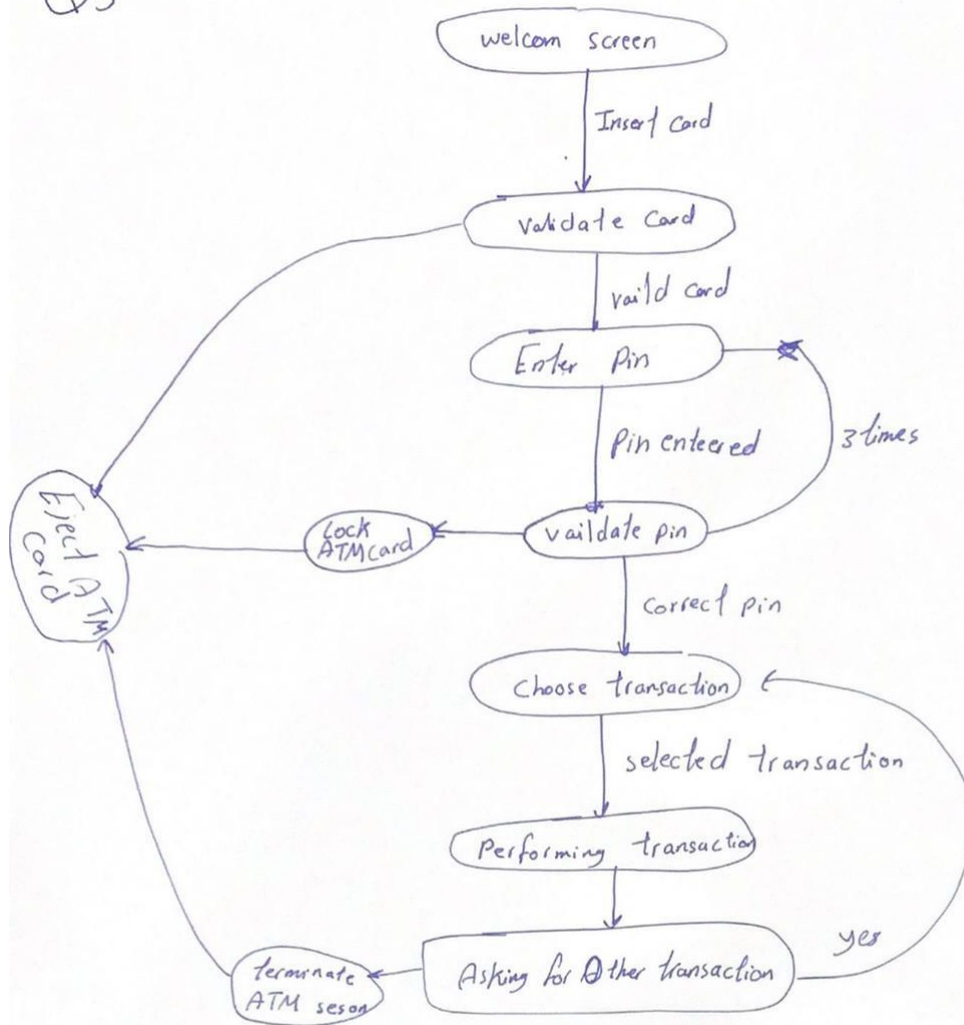 Q3
welcom screen
Insert card
Validate Card
vaild card
Enter Pin
Pin enteered
3 times
vaildate pin
Lock
ATM card
Eject ATM
Card
correct pin
choose transaction
selected transaction
Performing transaction
Asking for Other transaction
yes
terminate
ATM seson